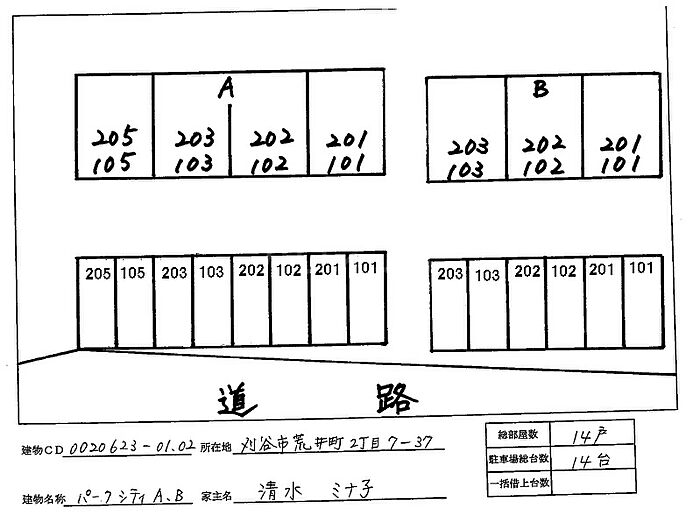 A B
205 203 202 201 203 202 201
105 103 102 101 103 102 101
205 105 203 103 202 102 201 101 203 103 202 102 201 101
道 路
建物CD 0020623-01.02 所在地 刈谷市荒井町2丁目7-37
建物名称 パークシティA、B 家主名 清水 ミナ子
総部屋数 14戸
駐車場総台数 14台
一括借上台数